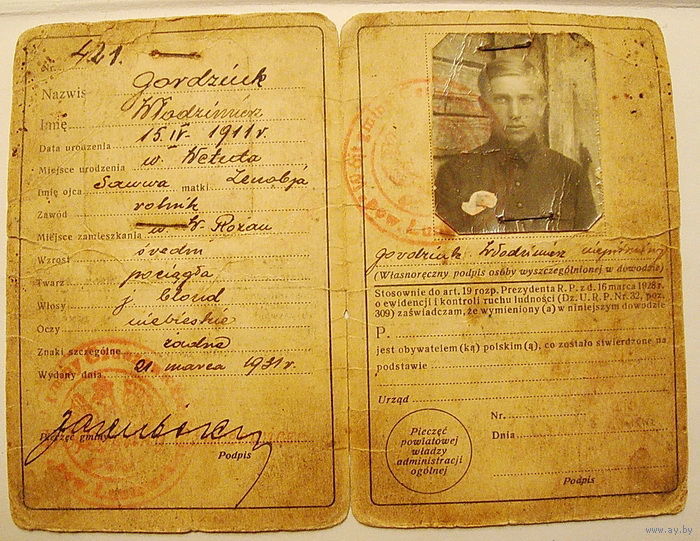 Nr. 421.
Nazwis gordziuk
Imię Włodzimierz
Data urodzenia 15.IV. 1911 r.
Miejsce urodzenia w. Wetuta
Imię ojca Sawwa matki Zenobja
Zawód rolnik
Miejsce zamieszkania w W. Rożan
Wzrost średni
Twarz pociągła
Włosy j. blond
Oczy niebieskie
Znaki szczególne żadne
Wydany dnia 21 marca 1931 r.
Pieczęć gminy
Podpis
gordziuk Włodzimierz
(Własnoręczny podpis osoby wyszczególnionej w dowodzie)
Stosownie do art. 19 rozp. Prezydenta R. P. z d. 16 marca 1928 r.
o ewidencji i kontroli ruchu ludności (Dz. U. R. P. Nr. 32, poz.
309) zaświadczam, że wymieniony (a) w niniejszym dowodzie
P.
jest obywatelem (ką) polskim (ą), co zostało stwierdzone na
podstawie
Urząd
Nr.
Dnia
Pieczęć
powiatowej
władzy
administracji
ogólnej
Podpis
www.ay.by